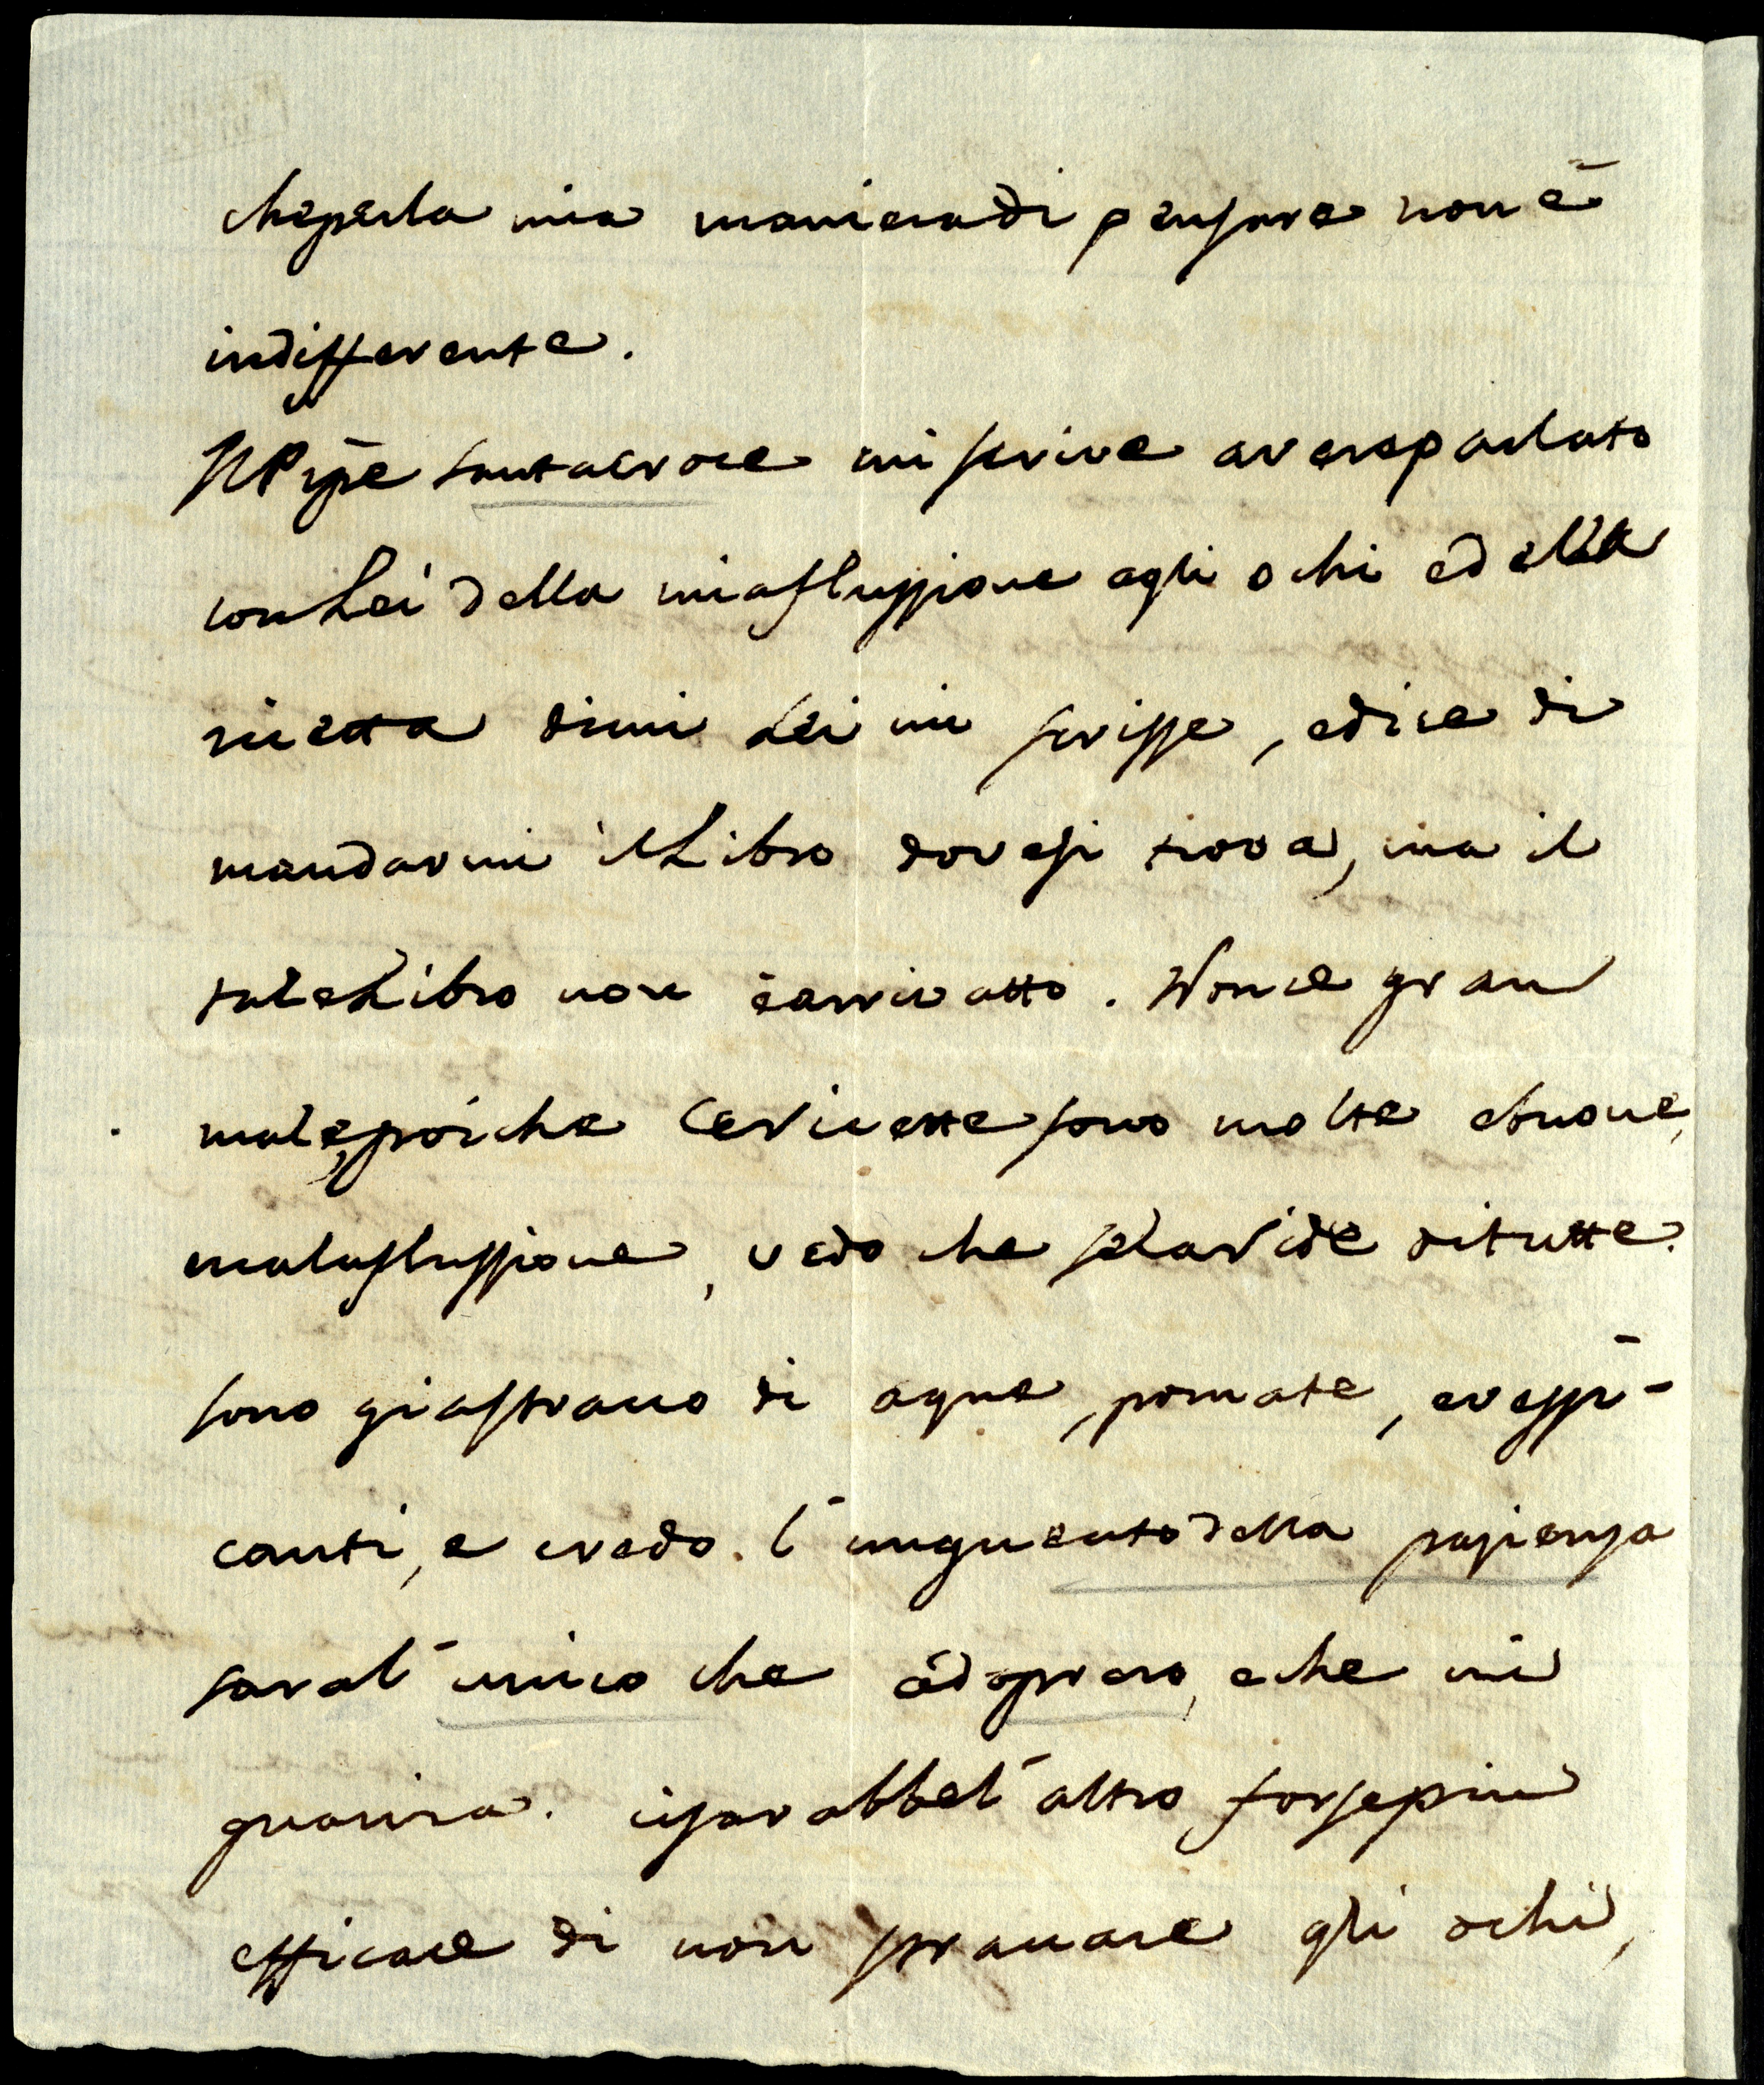 che per la mia maniera di pensare non è
indifferente.
Il Pñpe Santacroce mi scrive aver parlato
con Lei della mia flussione agli ochi e della
ricetta di cui Lei mi scrisse, e dice di
mandarmi il Libro dove si trova, ma il
tale Libro non è arrivatto. Non c'è gran
male, poiche le ricette sono molte e buone,
ma la flussione, vedo che se la ride di tutte.
sono già stracco di aque, pomate, e vessi-
canti, e credo l'unguento della pazienza
sara l'unico che adoprero, e che mi
guarira. ci sarabbe l'altro forse più
efficace di non  gli ochi,